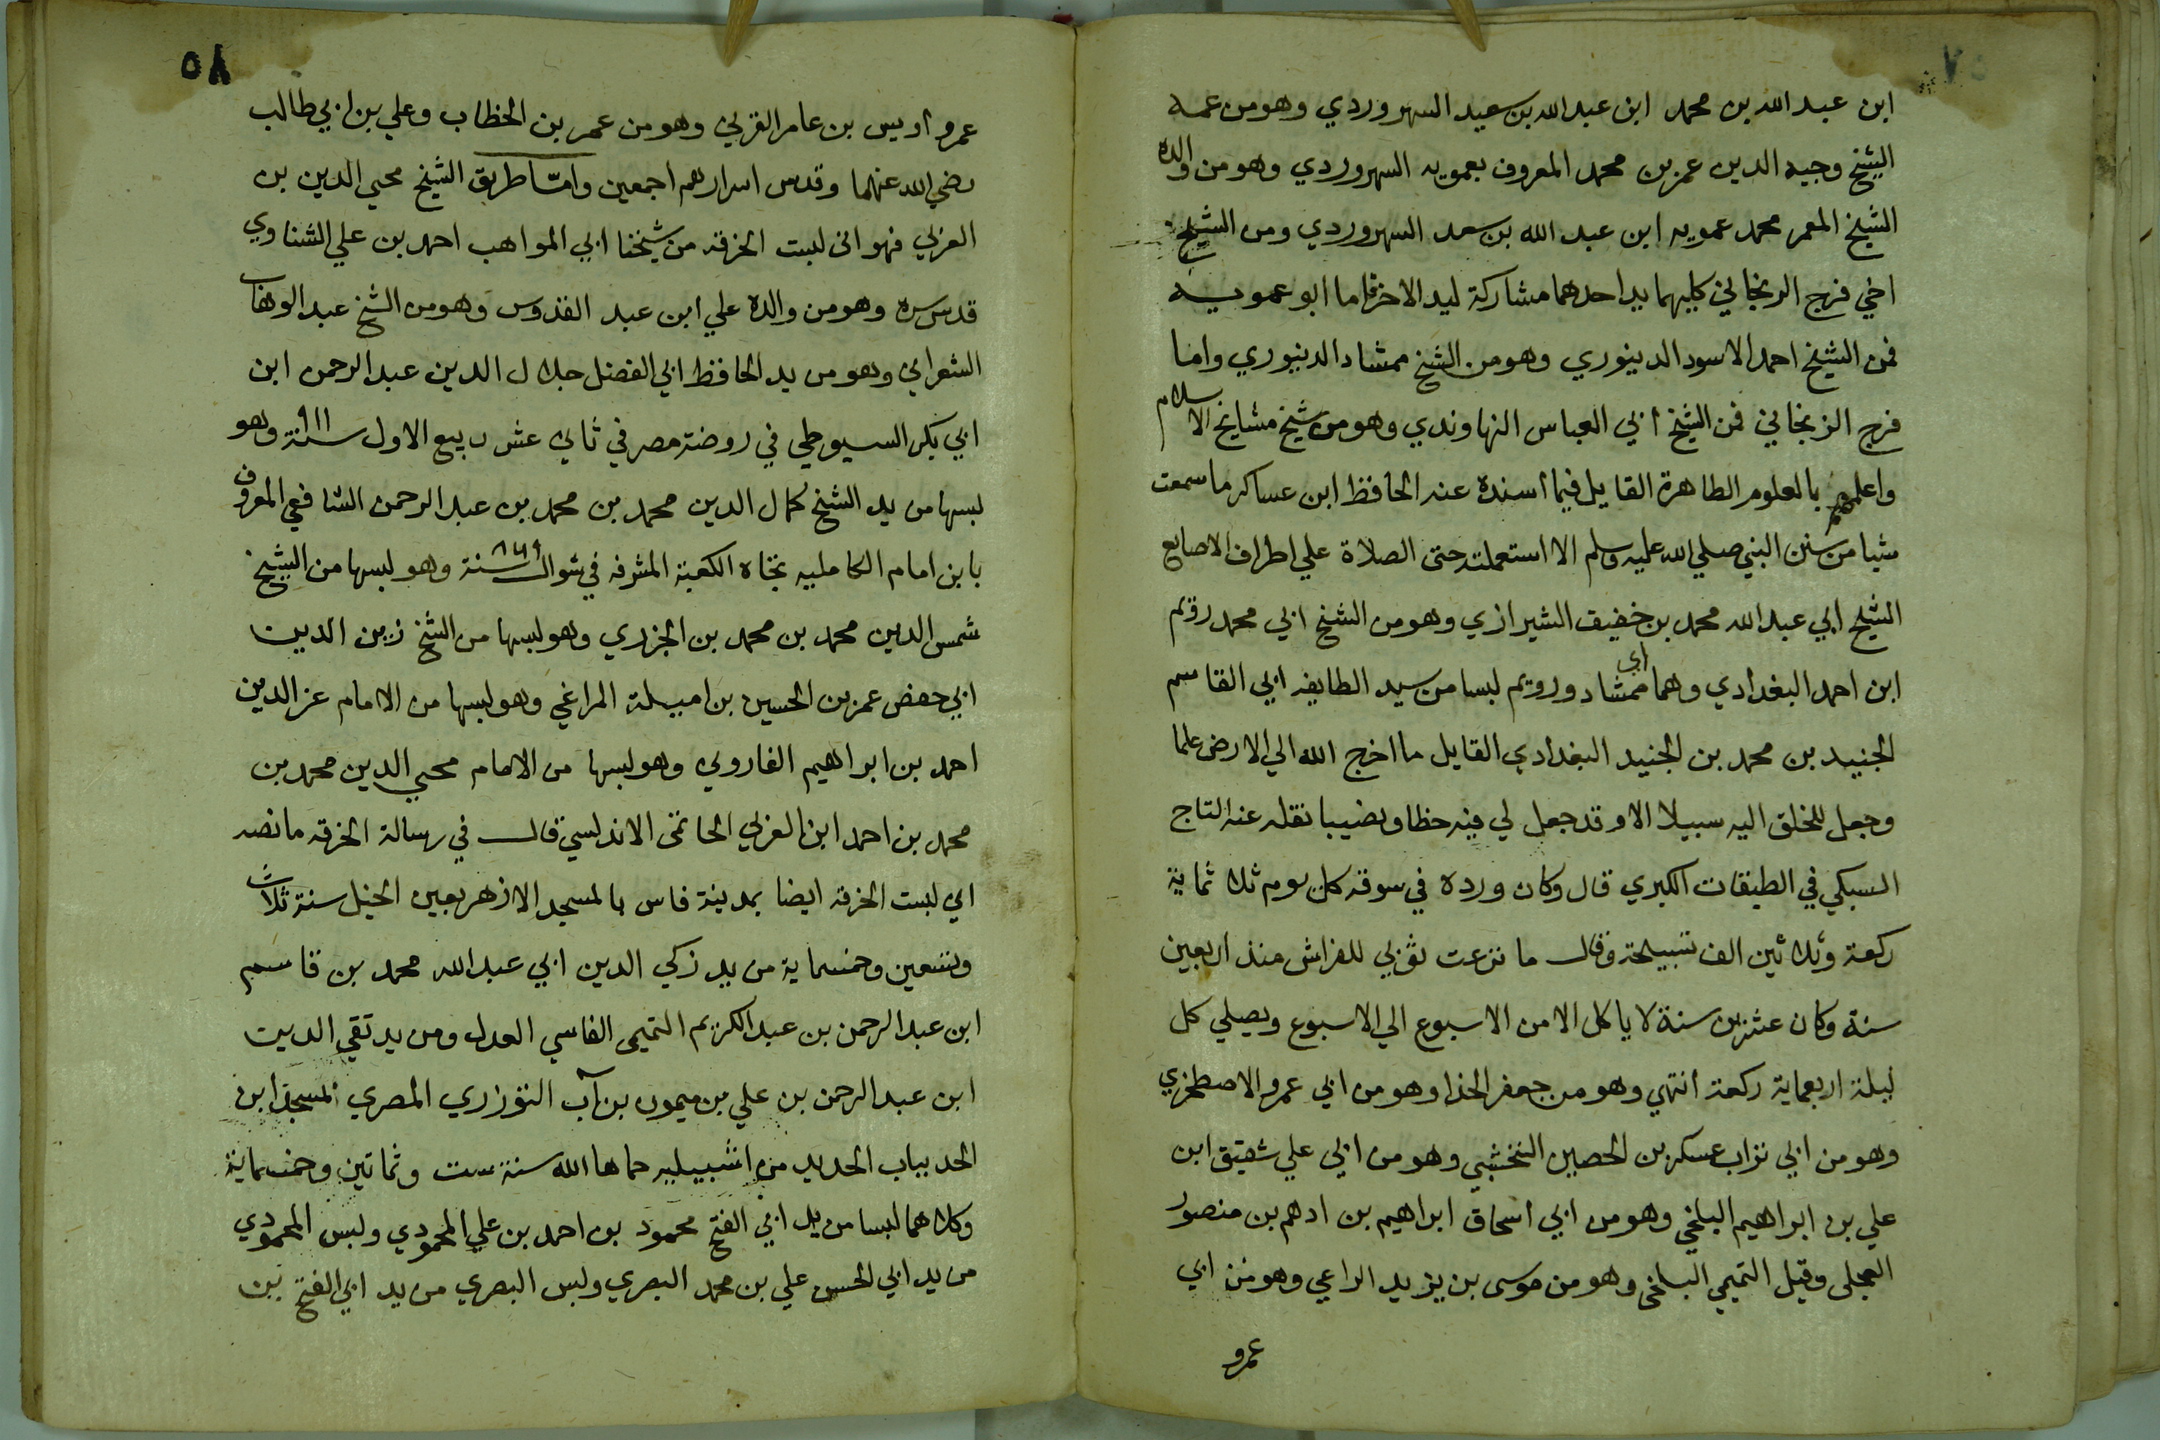 ابن عبد الله بن محمد ابن عبد الله بن سعيد السهروردي وهو من عمه
الشيخ وجيه الدين عمر بن محمد المعروف بعمويه السهروردي وهو من والده
الشيخ المعمر محمد عمويه ابن عبد الله بن سعد السهروردي ومن الشيخ
اخي فرج الزنجاني كليهما يد احدهما مشاركة ليد الاخر فاما ابو عمويه
فمن الشيخ احمد الاسود الدينوري وهو من الشيخ ممشاد الدينوري واما
فرج الزنجاني فمن الشيخ ابي العباس النهاوندي وهو من شيخ مشايخ الاسلام
واعلمهم بالعلوم الظاهرة القايل فيما اسنده عنه الحافظ ابن عساكر ما سمعت
شيا من سنن النبي صلي الله عليه وسلم الا استعملته حتى الصلاة علي اطراف الاصابع
الشيخ ابي عبد الله محمد بن خفيف الشيرازي وهو من الشيخ ابي محمد رويم
ابن احمد البغدادي وهما اي ممشاد ورويم لبسا من سيد الطايفه ابي القاسم
الجنيد بن محمد بن الجنيد البغدادي القايل ما اخرج الله الي الارض علما
وجعل للخلق اليه سبيلا الا وقد جعل لي فيه حظا ونصيبا نقله عنه التاج
السبكي في الطبقات الكبري قال وكان ورده في سوقه كل يوم ثلا ثماية
ركعة وثلاثين الف تسبيحة وقال ما نزعت ثوبي للفراش منذ اربعين
سنة وكان عشرين سنة لا ياكل الا من الاسبوع الي الاسبوع ويصلي كل
ليلة اربعماية ركعة انتهي وهو من جعفر الحذا وهو من ابي عمرو الاصطخري
وهو من ابي تراب عسكر بن الحصين النخشبي وهو من ابي علي شقيق ابن
علي بن ابراهيم البلخي وهو من ابي اسحاق ابراهيم بن ادهم بن منصور
العجلى وقيل التميمي البلخى وهو من موسى بن يزيد الراعي وهو من ابي
عمرو
٥٨
عمرو اويس بن عامر القرني وهو من عمر بن الخطاب وعلي بن ابي طالب
رضي الله عنهما وقدس اسرارهم اجمعين وامّا طريق الشيخ محيي الدين بن
العربي فهو اني لبست الخرقه من شيخنا ابي المواهب احمد بن علي الشناوي
قدس سره وهو من والده علي ابن عبد القدوس وهو من الشيخ عبد الوهاب
الشعراني وهو من يد الحافظ ابي الفضل جلال الدين عبد الرحمن ابن
ابي بكر السيوطي في روضة مصر في ثاني عشر ربيع الاول سنة ٩١١ وهو
لبسها من يد الشيخ كمال الدين محمد بن محمد بن عبد الرحمن الشافعي المعروف
بابن امام الكامليه تجاه الكعبة المشرفه في شوال سنة وهو لبسها من الشيخ
شمس الدين محمد بن محمد بن الجزري وهو لبسها من الشيخ زين الدين
ابي حفص عمر بن الحسين بن اميلة المراغي وهو لبسها من الامام عز الدين
احمد بن ابراهيم الفاروثي وهو لبسها من الامام محيي الدين محمد بن
محمد بن احمد ابن العربي الحاتمى الاندلسي قال في رسالة الخرقه ما نصه
اني لبست الخرقه ايضا بمدينة فاس بالمسجد الازهر بعين الخيل سنة ثلاث
وتسعين وخمسماية من يد زكي الدين ابي عبد الله محمد بن قاسم
ابن عبد الرحمن بن عبد الكريم التميمى الفاسي العدل ومن يد تقي الدين
ابن عبد الرحمن بن علي بن ميمون بن آب التوزري المصري المسجد ابن
الحد بباب الحديد من اشبيليه حماها الله سنة ست وثمانين وخمسماية
وكلاهما لبسا من يد ابي الفتح محمود بن احمد بن علي المحمودي ولبس المحمودي
من يد ابي الحسن علي بن محمد البصري ولبس البصري من يد ابي الفتح بن